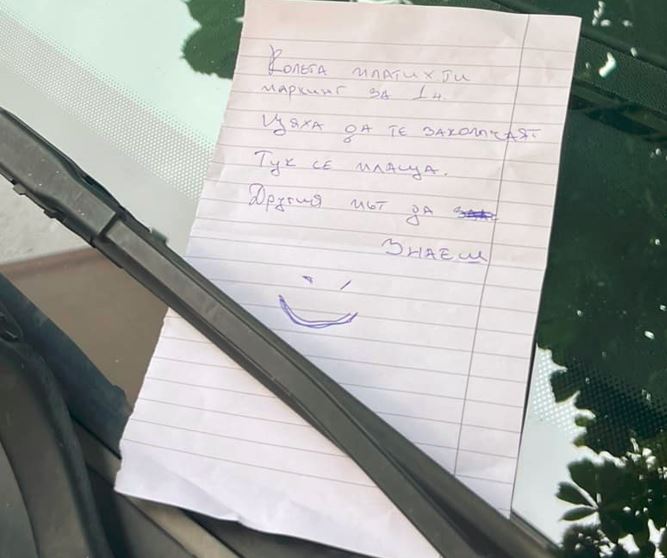 Колега платих ти
паркинг за 1ч.
Щяха да те закопчаят
Тук се плаща.
Другия път да
знаеш